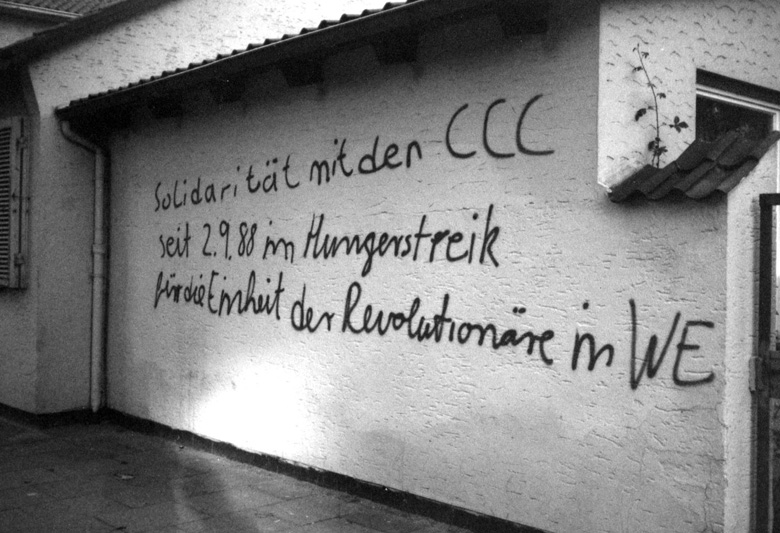 Solidarität mit den CCC
seit 2.9.88 im Hungerstreik
für die Einheit der Revolutionäre in WE